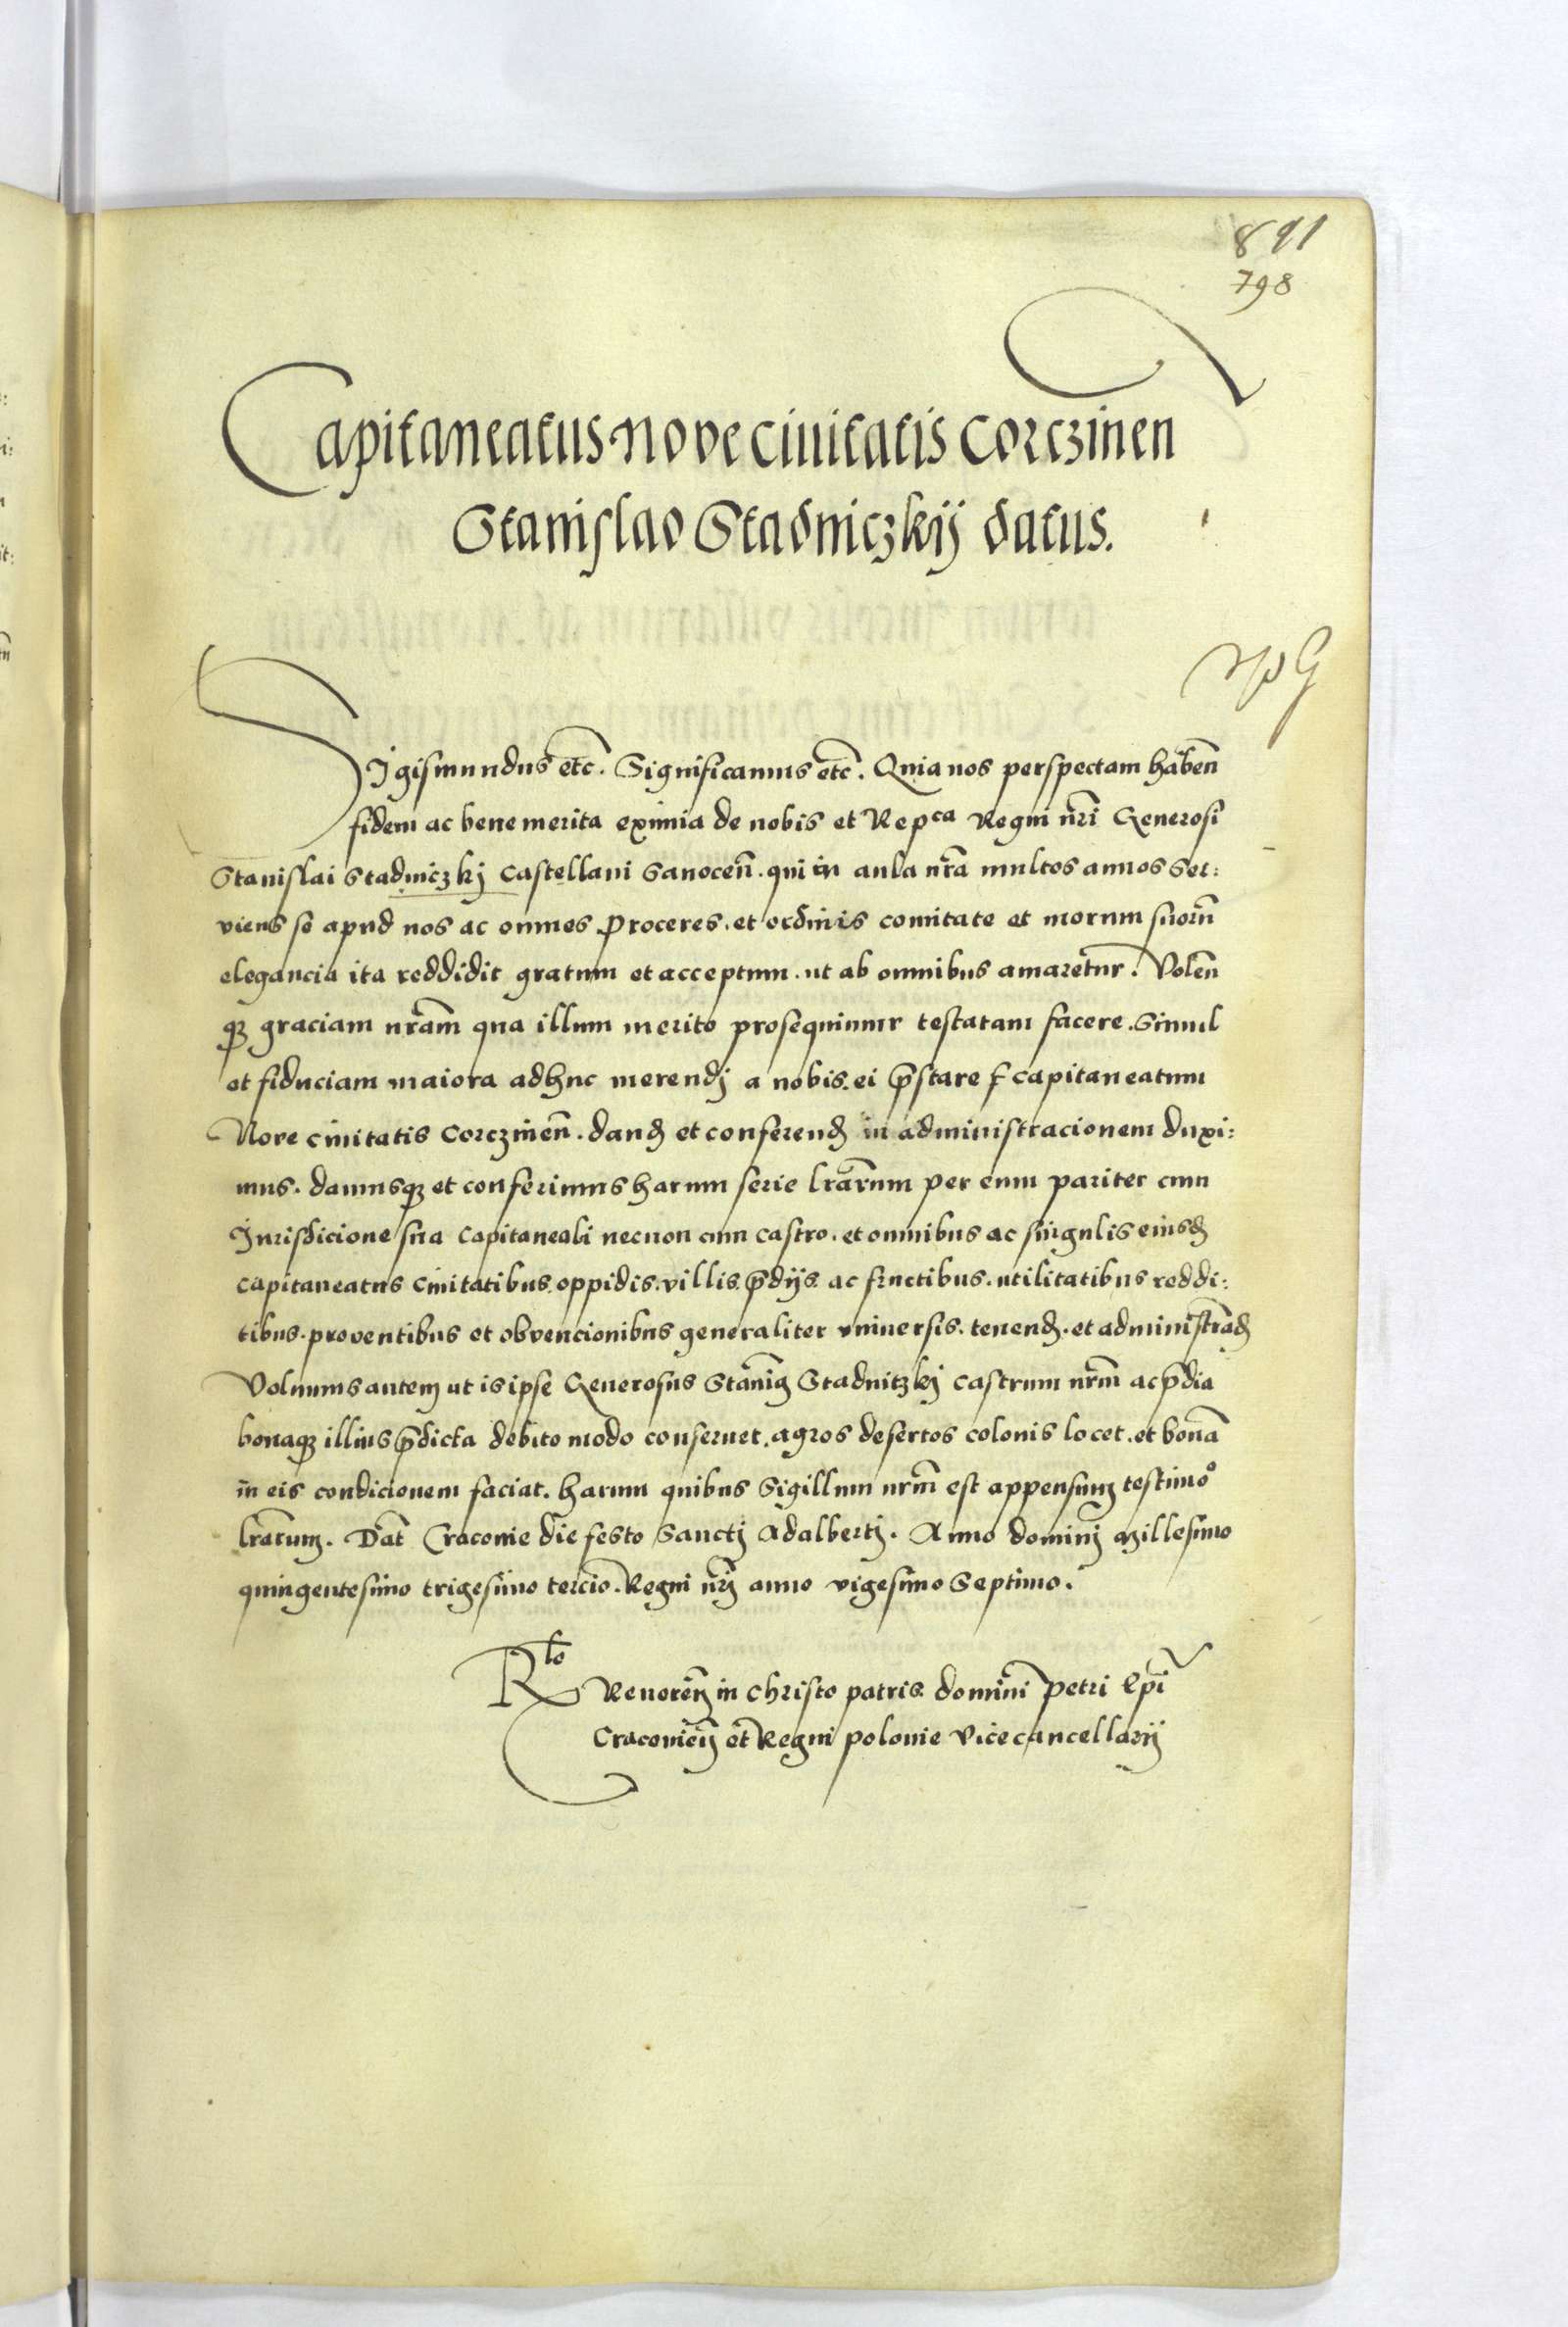 891
798
Capitaneatus nove civitatis Corczinen
Stanislao Stadniczkij datus.
Sigismundus etc̄. Significamus etc̄. Quia nos perspectam haben̄
fidem ac bene merita eximia de nobis et Rep^ca Regni nr̄i Generosi
Stanislai Stadniczkj Castellani Sanocen̄. qui in aula nr̄a multos annos ser:
viens se apud nos ac omnes proceres. et ordinis comitate et morum suorū
elegancia ita reddidit gratum et acceptum. ut ab omnibus amaretur. Volen̄
qꝫ graciam nr̄am qua illum merito prosequimur testatam facere. Simul
et fiduciam maiora adhuc merendj a nobis. ei p̄stare ẜ capitaneatum
Nove civitatis Corczinen̄. dand̄ et conferend̄ in administracionem duxi:
mus. damusqꝫ et conferimus harum serie lr̄arum per eum pariter cum
Jurisdicione sua Capitaneali necnon cum castro. et omnibus ac singulis eiusd̄
capitaneatus civitatibus. oppidis. villis. p̄dijs. ac fructibus. utilitatibus reddi:
tibus. proventibus et obvencionibus generaliter vniversis. tenend̄. et administrand̄
Volumus autem ut is ipse Generosus Stanis̄ Stadnitzkj castrum nr̄m ac p̄dia
bonaqꝫ illius p̄dicta debito modo conservet. agros desertos colonis locet. et bonā
in eis condicionem faciat. harum quibus Sigillum nr̄m est appensum testimo^o
lr̄arum. Dat̄ Cracovie die festo Sancti Adalberti. Anno dominj Millesimo
quingentesimo trigesimo tercio. Regni nr̄j anno vigesimo Septimo.
R^lo Reveren̄ in Christo patris domini Petri Ep̄i
Cracovien̄ et Regni polonie Vicecancellarij